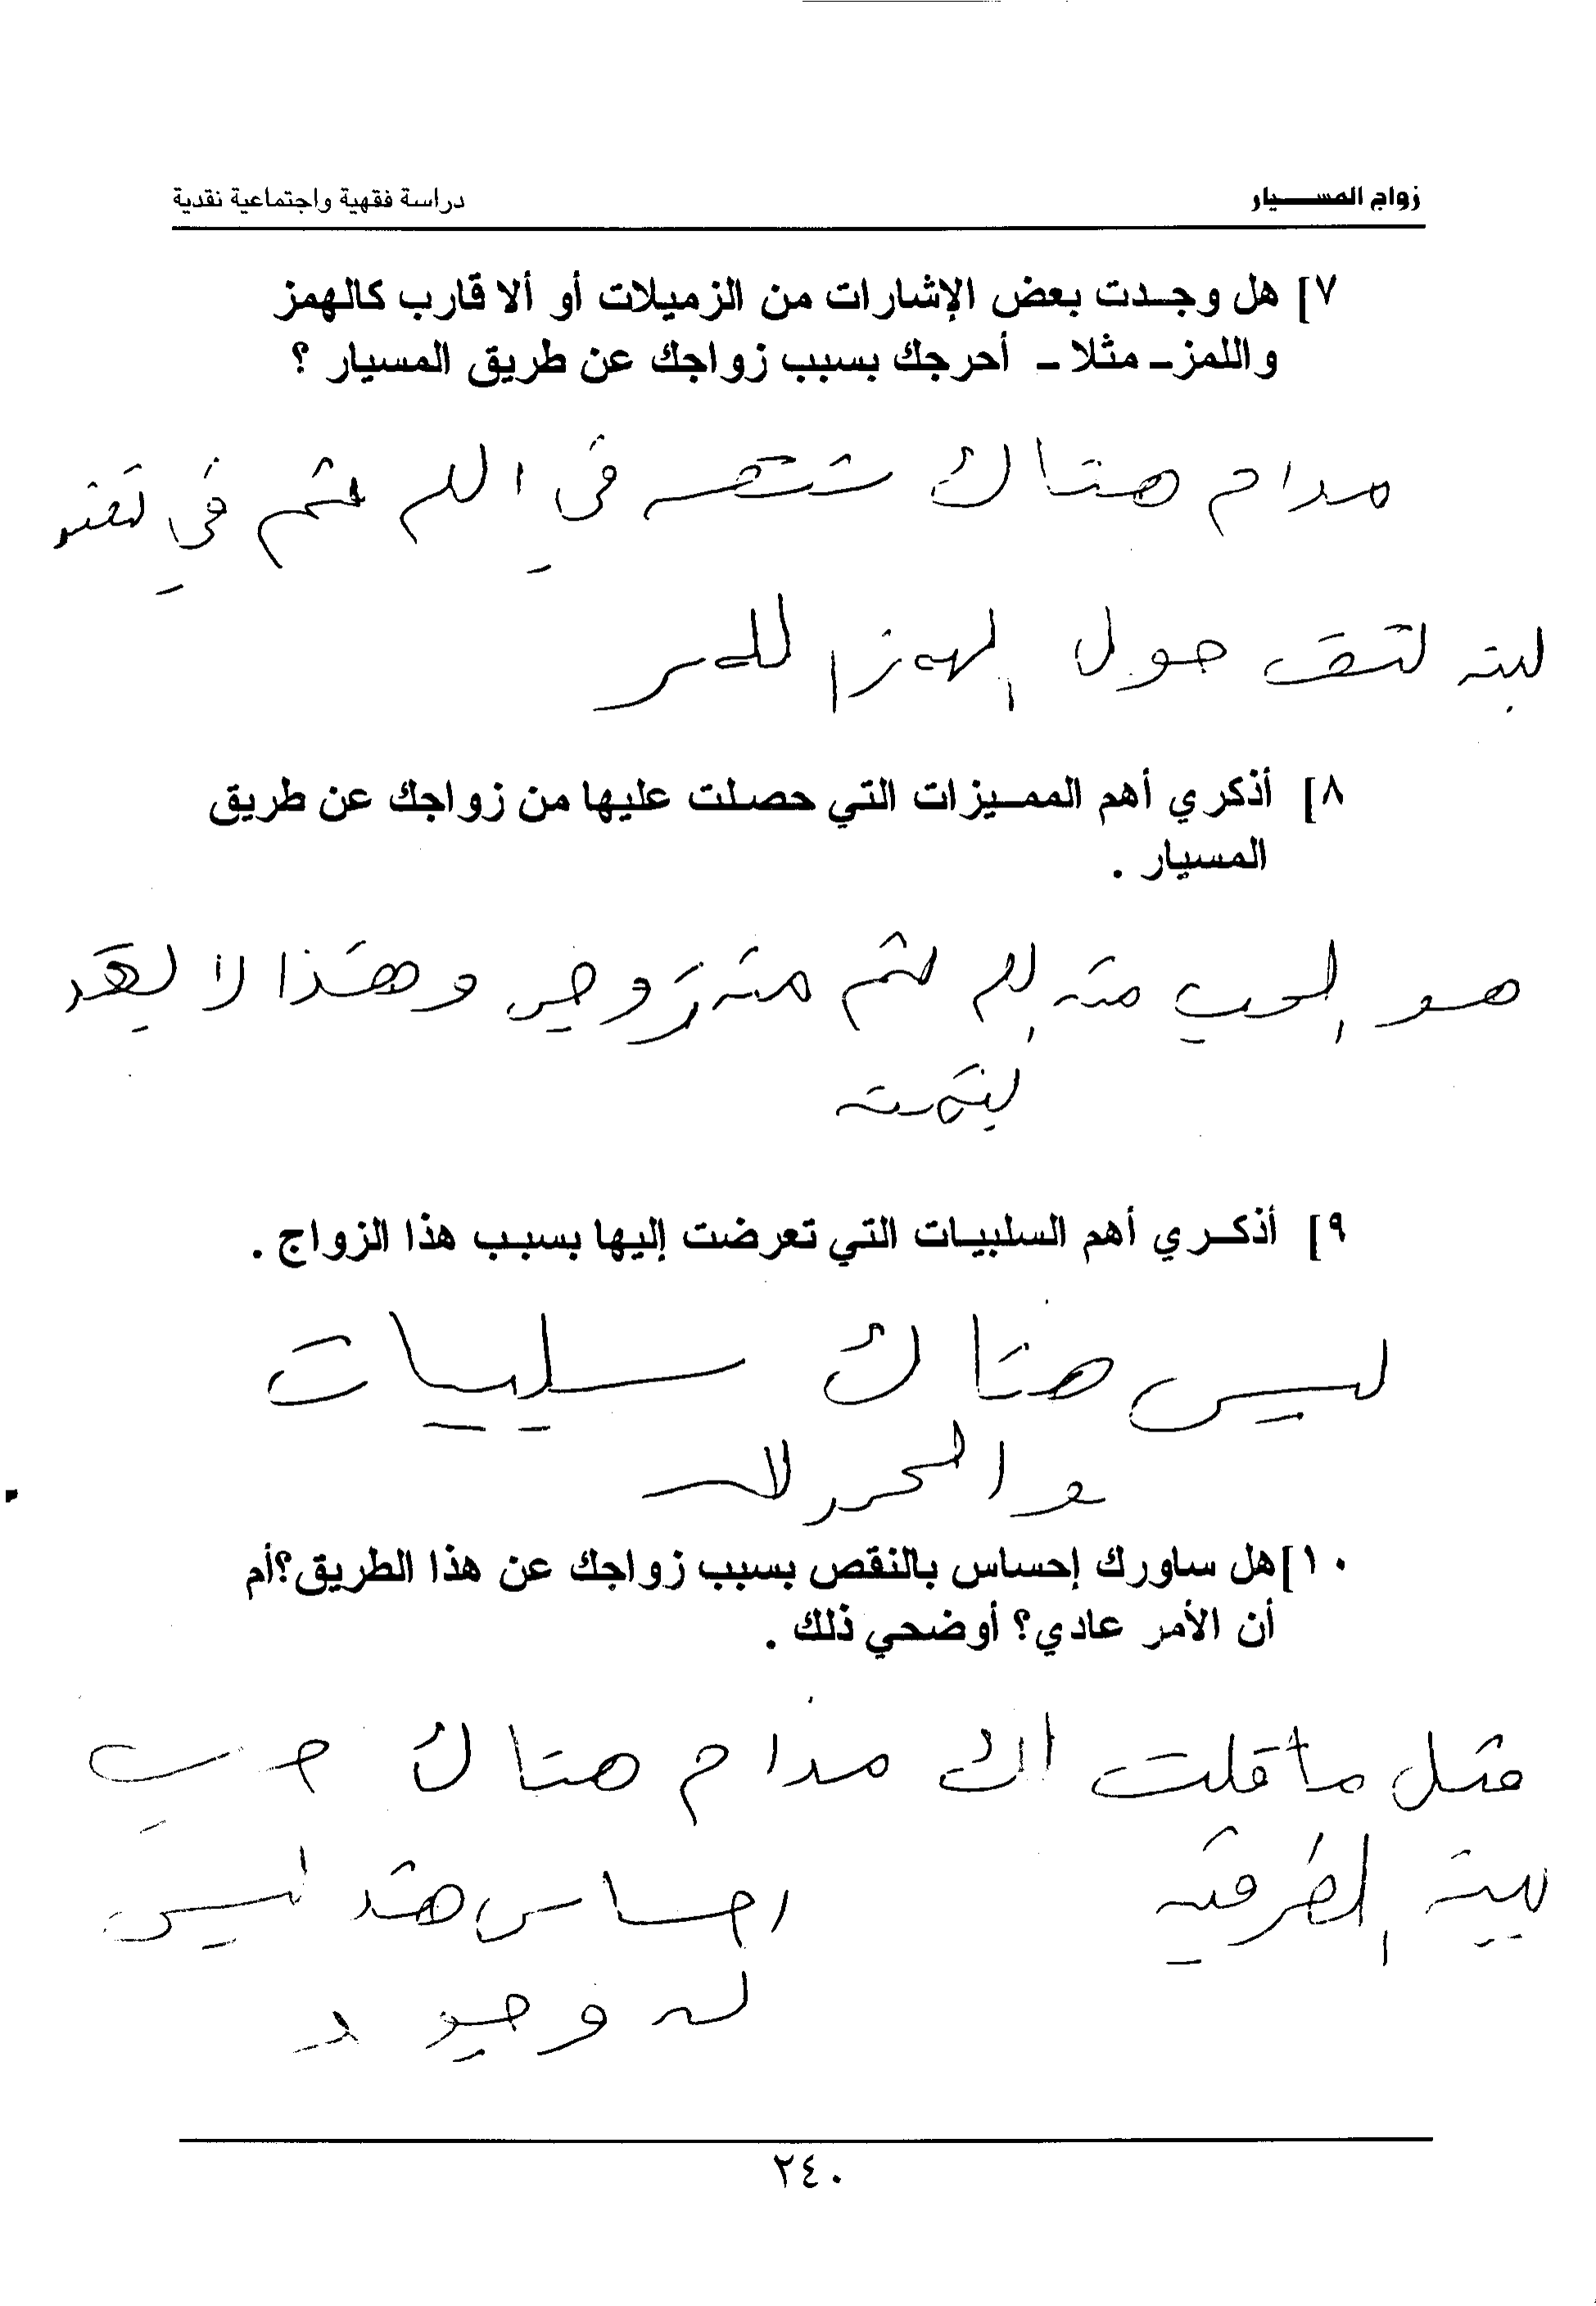 زواج المسيار
دراسة فقهية واجتماعية نقدية
٧] هل وجدت بعض الإشارات من الزميلات أو ألا قارب كالهمز
واللمز ـ مثلا ـ أحرجك بسبب زواجك عن طريق المسيار ؟
مدام هناك في الله ثم في
حول الهمز
٨] أذكري أهم المميزات التي حصلت عليها من زواجك عن طريق
المسيار .
هو الحب منه ثم منه زوجي وهذا لا
٩] أذكري أهم السلبيات التي تعرضت إليها بسبب هذا الزواج .
ليس هناك سلبيات
والحمد لله
١٠] هل ساورك إحساس بالنقص بسبب زواجك عن هذا الطريق؟أم
أن الأمر عادي؟ أوضحي ذلك .
مثل ما قلت لك مدام هناك حب
احساس ليس
له وجود
٢٤٠